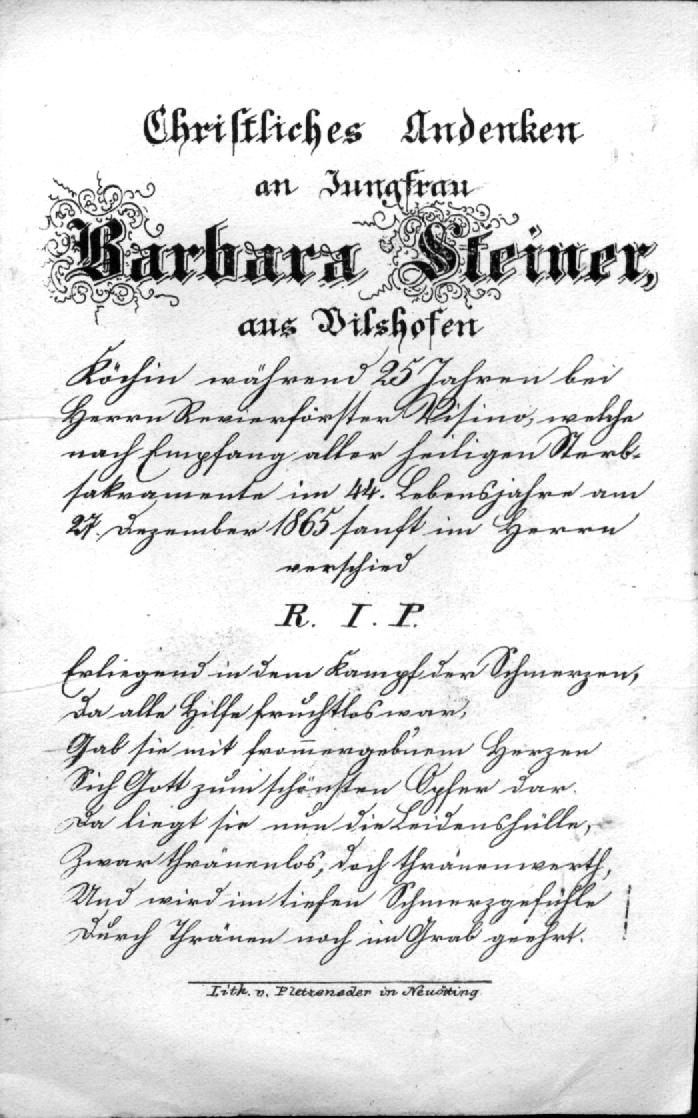 Christliches Andenken
an Jungfrau
Barbara Steiner,
aus Vilshofen
Köchin während 25 Jahren bei
Herrn Revierförster Visino, welche
nach Empfang aller heiligen Sterb-
sakramente im 44. Lebensjahre am
27. Dezember 1865 sanft im Herrn
verschied
R. I. P.
Erliegend in dem Kampf der Schmerzen,
Da alle Hilfe fruchtlos war,
Gab sie mit from̅ergeb'nem Herzen
Sich Gott zum schönsten Opfer dar.
Da liegt sie nun die Leidenshülle,
Zwar thränenlos, doch thränenwerth,
Und wird im tiefen Schmerzgefühle
Durch Thränen noch im Grab geehrt.
Lith. v. Pletzeneder in Neuötting